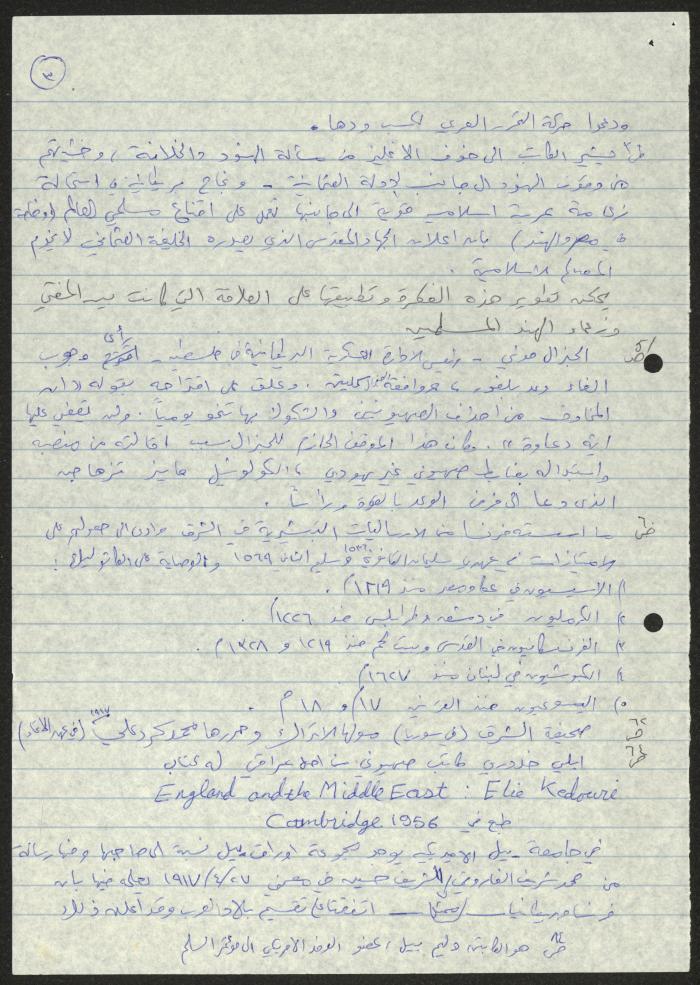 ٣
ودعموا حركة التحرر العربي لكسب ودها.
يشير الكاتب الى خوف الانجليز من مسألة الهنود والخلافة، وخشيتهم
من وقوف الهنود الى جانب الدولة العثمانية - ونجاح بريطانيا في استمالة
زعامة عربية اسلامية قوية الى جانبها تعمل على اقناع مسلمي العالم (وخاصة
في مصر والهند) بان اعلان الجهاد المقدس الذي يصدره الخليفة العثماني لا يخدم
المصالح الاسلامية.
يمكن تطوير هذه الفكرة وتطبيقها على العلاقة التي كانت بين المفتي
وزعماء الهند المسلمين
الجنرال موني - رئيس الادارة العسكرية البريطانية في فلسطين - رأى وجوب
الغاء وعد بلفور، وعلق على اقتراحه بقوله ان
المخاوف من اهداف الصهيونيين والشكوك بها تنمو يومياً. ولن تقضي عليها
اية دعاوة". وكان هذا الموقف الحازم للجنرال سبب اقالته من منصبه
واستبداله بضابط صهيوني غير يهودي، الكولونيل
الذي دعا الى فرض الوعد بالقوة
ما اسسته فرنسا من الارساليات التبشيرية في الشرق وادى الى حصولهم على
امتيازات في عهدي سليمان القانوني ١٥٣٥ وسليم الثاني ١٥٦٩ والوصاية على الكاثوليك:
١) الاسيسيون في عكا ومصر منذ ١٢١٩م.
٢) الكرمليون في دمشق وطرابلس منذ ١٢٢٦م.
٣) الفرنسيسكانيون في القدس وبيت لحم منذ ١٢١٩ و ١٣٢٨م.
٤) الكبوشيون في لبنان منذ ١٦٢٧م.
٥) اليسوعيون منذ القرنين ١٧ و ١٨م.
ص٦٢ صحيفة الشرق (في سوريا) مولها الاتراك وحررها محمد كرد علي ١٩١٧
ص٦٤ ايلي خدوري كاتب صهيوني من اصل عراقي له كتاب
England and the Middle East : Elie Kedourie
طبع في Cambridge 1956
في جامعة ييل الامريكية يوجد مجموعة اوراق ييل نسبة الى صاحبها وفيها رسالة
من محمد شريف الفاروقي للشريف حسين في ٢٧/٤/١٩١٧ يعلمه فيها بان
فرنسا وبريطانيا اتفقتا على تقسيم بلاد العرب وقد اعلنه
هو الكابتن وليم ييل، عضو الوفد الامريكي الى مؤتمر السلم